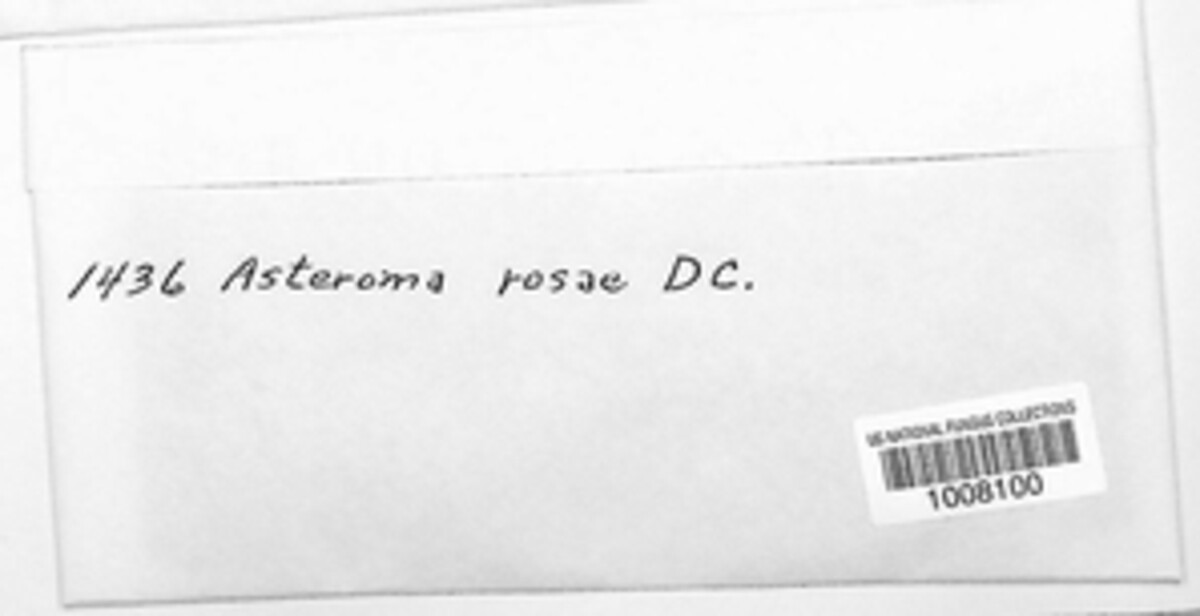 1436 Asteroma rosae DC.
US NATIONAL FUNGUS COLLECTIONS
1008100